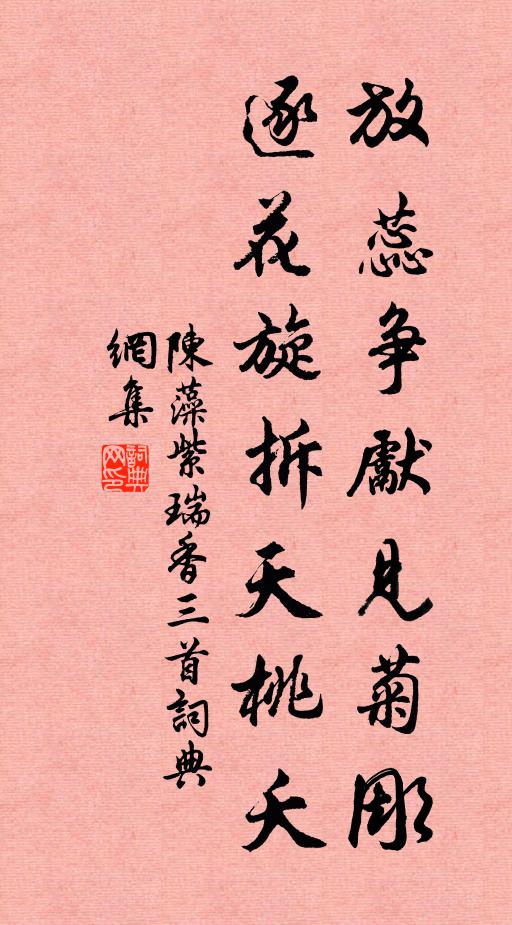 放蕊争獻見菊彫
逐花旋拆天桃夭
陳藻紫瑞香三首詞典
網集
詞典網印